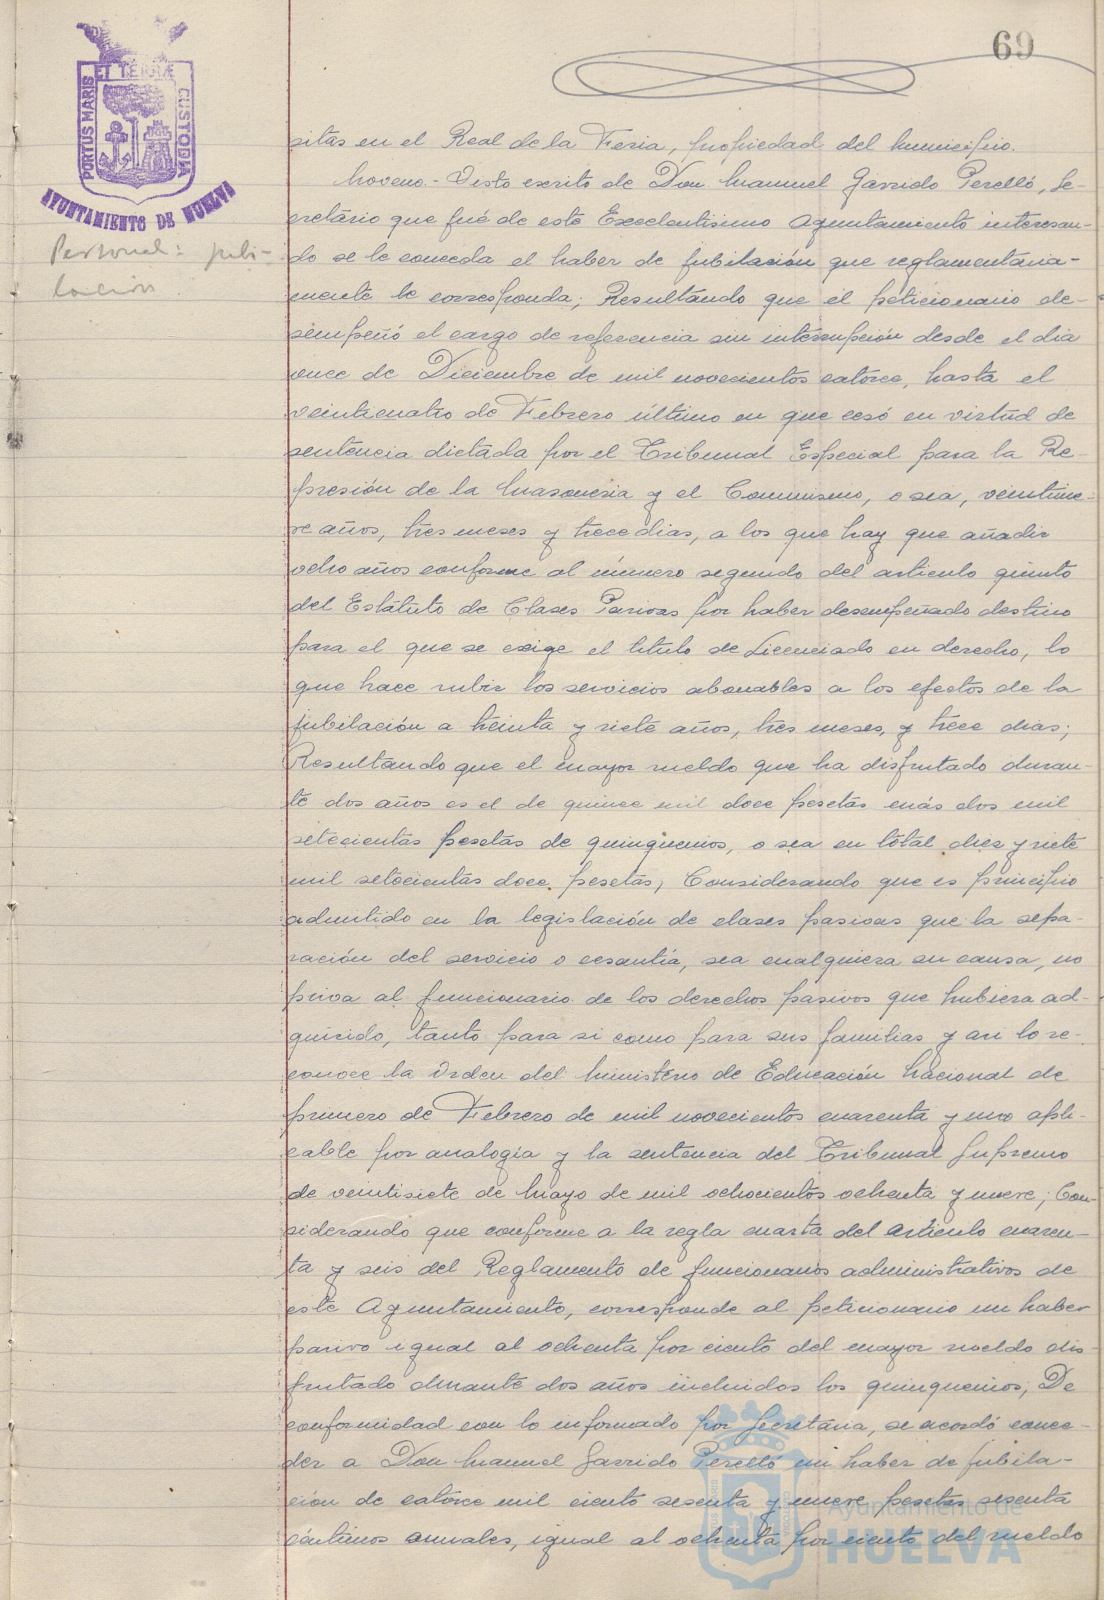 69
PORTUS MARIS ET TERRÆ CUSTODIA
AYUNTAMIENTO DE HUELVA
Personal: jubi-
lación
sitas en el Real de la Feria, propiedad del Municipio.
Noveno.- Visto escrito de Don Manuel Garrido Perelló, Se-
cretário que fué de este Excelentisimo Ayuntamiento interesan-
do se le conceda el haber de jubilación que reglamentaria-
mente le corresponda; Resultando que el peticionario de-
sempeñó el cargo de referencia sin interrupción desde el dia
once de Diciembre de mil novecientos catorce, hasta el
veinticuatro de Febrero último en que cesó en virtud de
sentencia dictada por el Tribunal Especial para la Re-
presión de la Masoneria y el Comunismo, o sea, veintinue-
ve años, tres meses y trece dias, a los que hay que añadir
ocho años conforme al número segundo del articulo quinto
del Estatuto de Clases Pasivas por haber desempeñado destino
para el que se exige el titulo de Licenciado en derecho, lo
que hace subir los servicios abonables a los efectos de la
jubilación a treinta y siete años, tres meses, y trece dias;
Resultando que el mayor sueldo que ha disfrutado duran-
te dos años es el de quince mil doce pesetas más dos mil
setecientas pesetas de quinquenios, o sea en total diez y siete
mil setecientas doce pesetas; Considerando que es principio
admitido en la legislación de clases pasivas que la sepa-
ración del servicio o cesantía, sea cualquiera su causa, no
priva al funcionario de los derechos pasivos que hubiera ad-
quirido, tanto para si como para sus familias y asi lo re-
conoce la Orden del Ministerio de Educación Nacional de
primero de Febrero de mil novecientos cuarenta y uno apli-
cable por analogía y la sentencia del Tribunal Supremo
de veintisiete de Mayo de mil ochocientos ochenta y nueve; Con-
siderando que conforme a la regla cuarta del artículo cuaren-
ta y seis del Reglamento de funcionarios administrativos de
este Ayuntamiento, corresponde al peticionario un haber
pasivo igual al ochenta por ciento del mayor sueldo dis-
frutado durante dos años incluidos los quinquenios; De
conformidad con lo informado por Secretaria, se acordó conce-
der a Don Manuel Garrido Perelló un haber de jubila-
ción de catorce mil ciento sesenta y nueve pesetas sesenta
céntimos anuales, igual al ochenta por ciento del sueldo
Ayuntamiento de
HUELVA